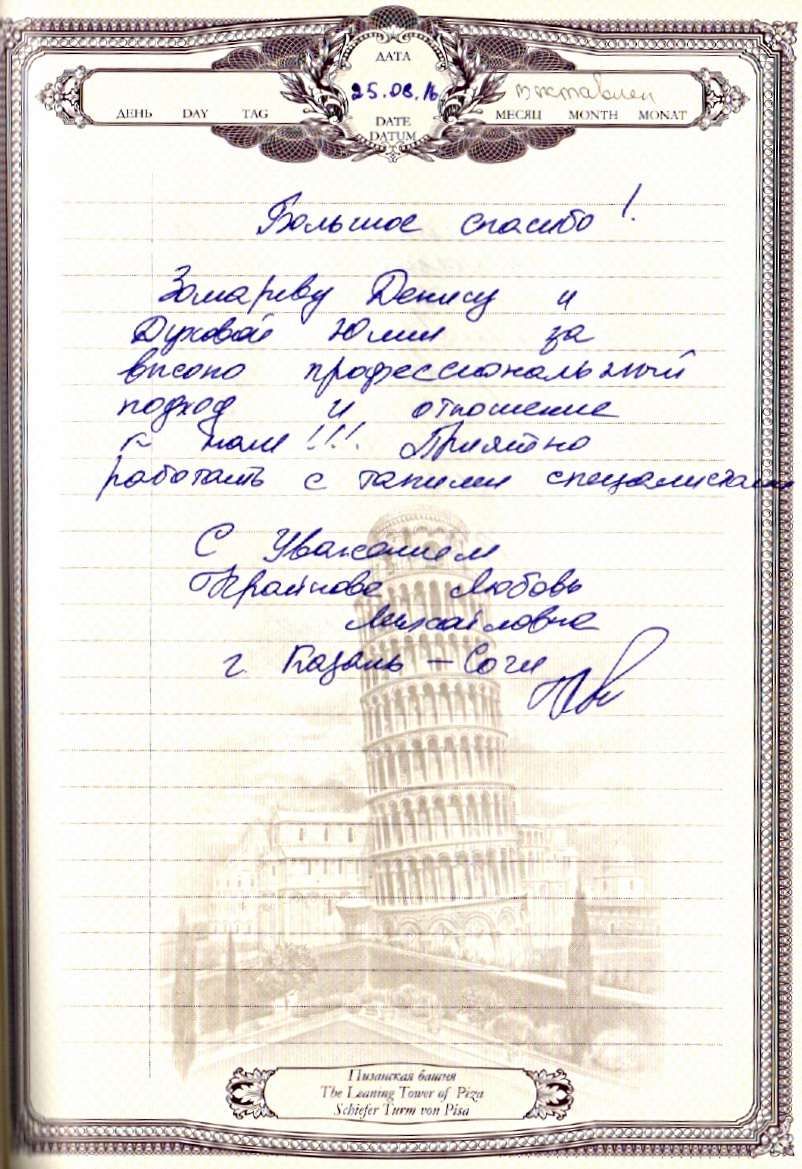 ДАТА
25.08.16
ДЕНЬ DAY TAG
DATE
DATUM
МЕСЯЦ MONTH MONAT
Большое спасибо!
Денису и
Духовой Юлии за
высоко профессиональный
подход и отношение
к нам!!! Приятно
работать с такими специалистами
С Уважением
Крайнова Любовь
Михайловна
г. Казань – Сочи
Пизанская башня
The Leaning Tower of Piza
Schiefer Turm von Pisa